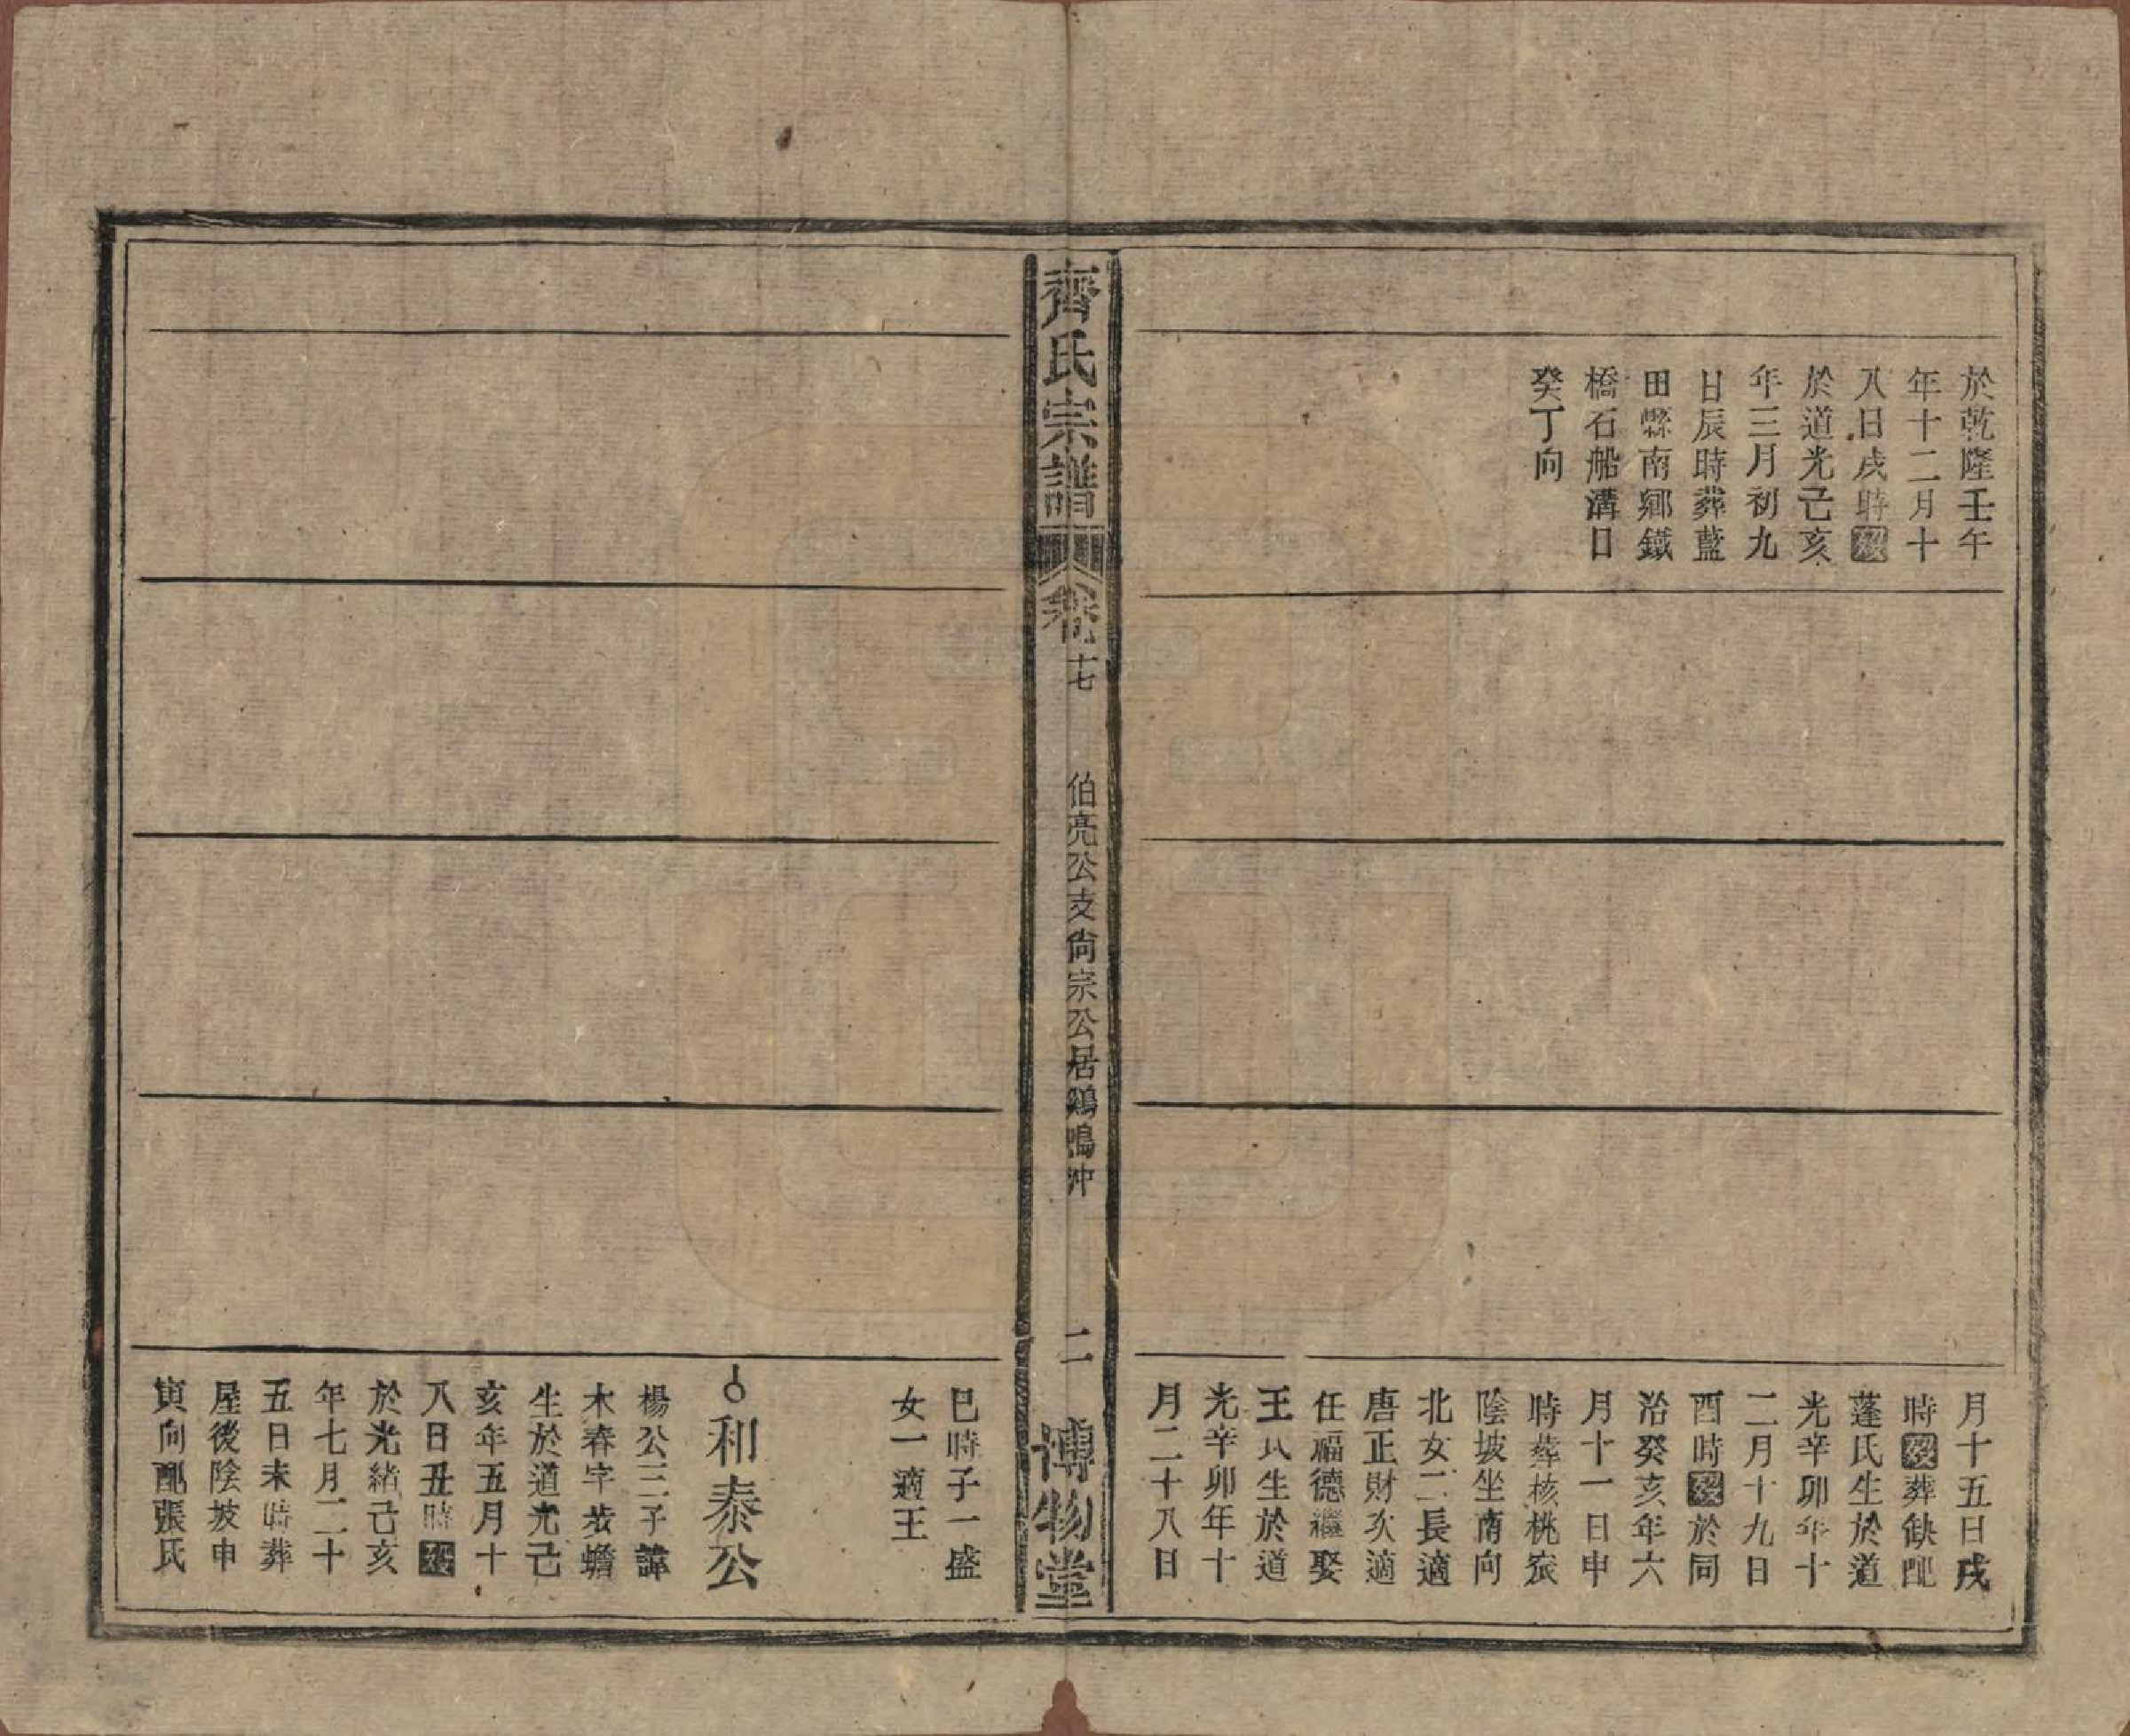 於乾隆壬午
年十二月十
八日戌時歿
於道光己亥
年三月初九
日辰時葬藍
田縣南鄉鐵
橋石船溝日
癸丁向
月十五日戌
時歿葬缺配
蓬氏生於道
光辛卯年十
二月十九日
酉時歿於同
治癸亥年六
月十一日申
時葬核桃宸
陰坡坐南向
北女二長適
唐正財次適
任福德繼娶
王氏生於道
光辛卯年十
月二十八日
齊氏宗譜
卷 十七
伯亮公支尙宗公居鷄鳴沖
二
博物堂
巳時子一盛
女一適王
和泰公
楊公三子諱
木春字步蟾
生於道光己
亥年五月十
八日丑時歿
於光緒己亥
年七月二十
五日未時葬
屋後陰坡申
寅向配張氏